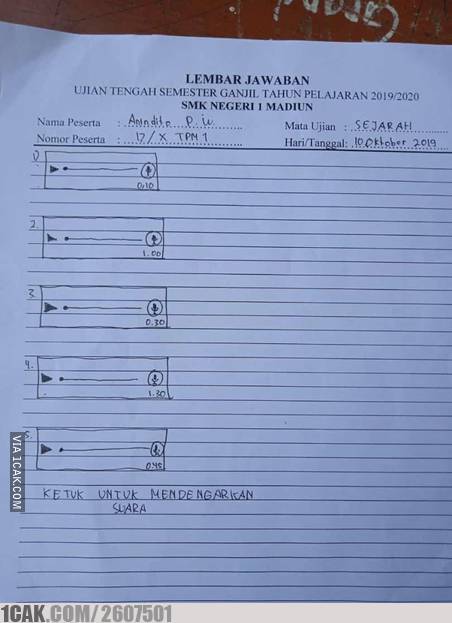 LEMBAR JAWABAN
UJIAN TENGAH SEMESTER GANJIL TAHUN PELAJARAN 2019/2020
SMK NEGERI 1 MADIUN
Nama Peserta : Anindita P. W. Mata Ujian : SEJARAH
Nomor Peserta : 17/X TPM 1 Hari/Tanggal: 10 Oktober 2019
1.
0.10
2.
1.00
3.
0.30
4.
1.30
5.
0.45
KETUK UNTUK MENDENGARKAN
SUARA
VIA 1CAK.COM
1CAK.COM/2607501